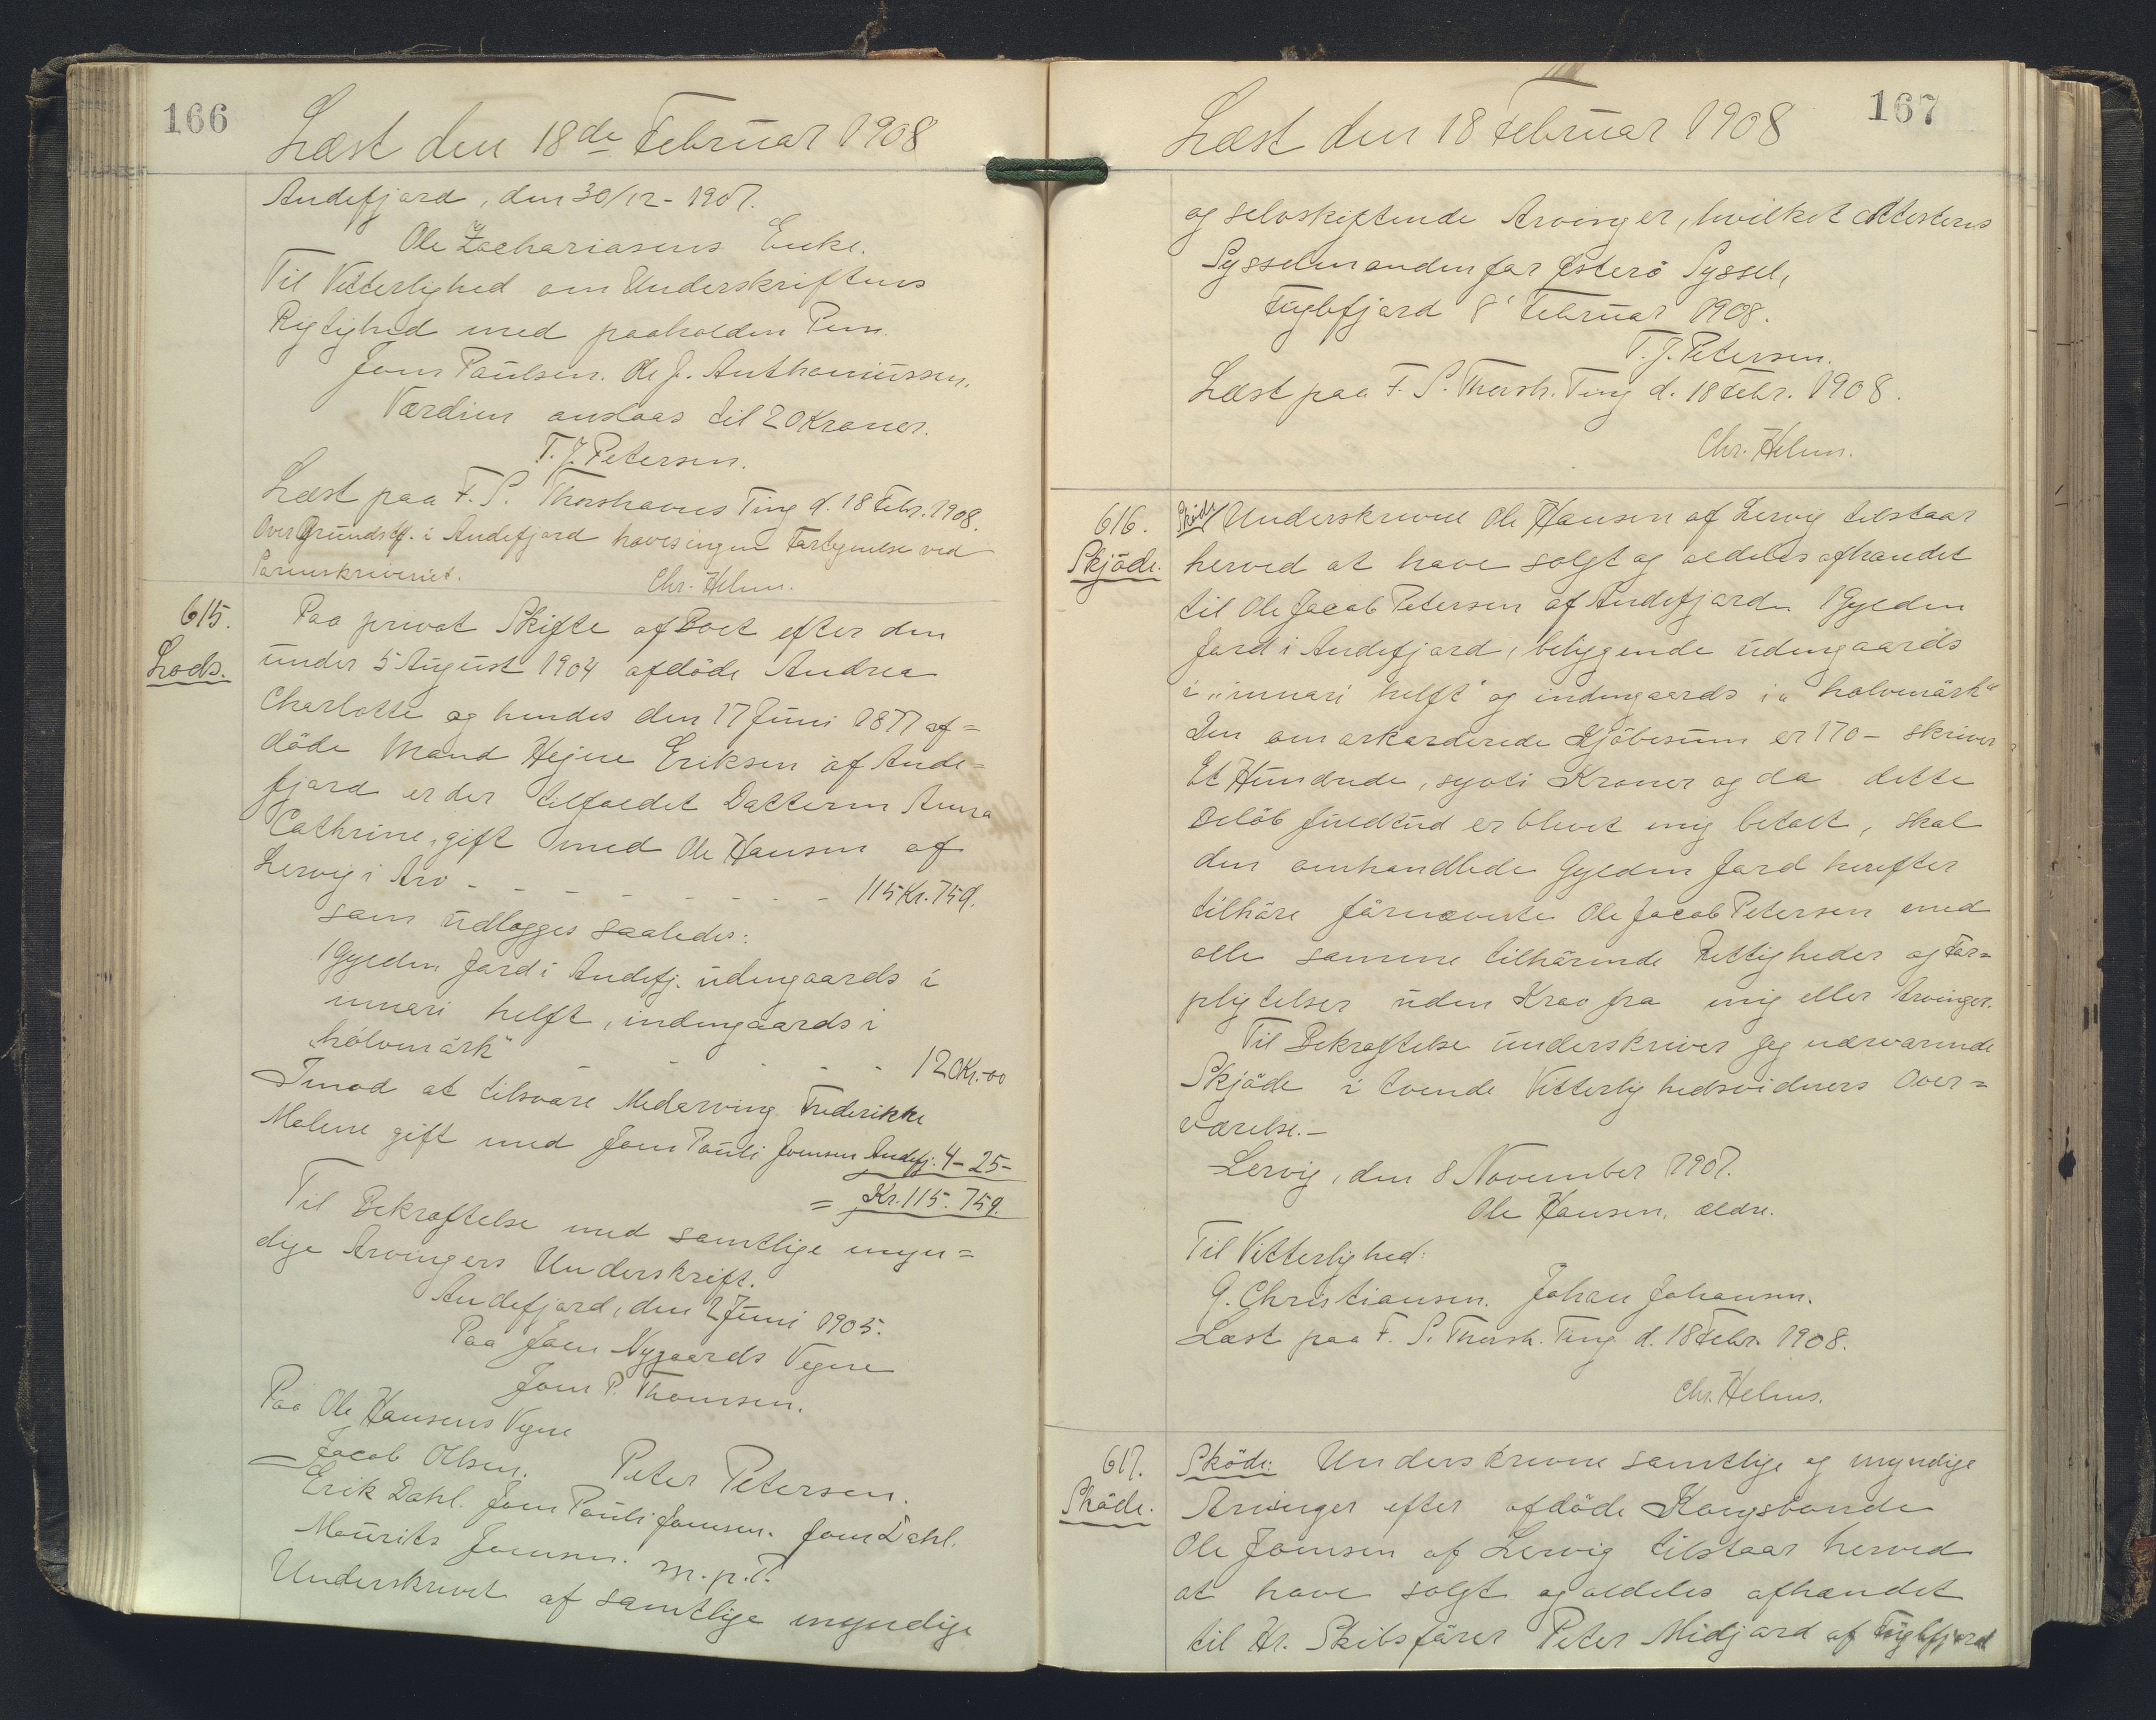 166
Læst den 18de Februar 1908
Andefjord, den 30/12-1907.
Ole Zachariasens Enke.
Til Vitterlighed om Underskriftens
Rigtighed med paaholden Pen.
Joen Paulsen. Ole J. Anthoniussen.
Værdien anslaas til 20 Kroner.
T. J. Petersen.
Læst paa F. S. Thorshavns Ting d. 18 Febr. 1908.
Over Grundst. i Andefjord haves ingen Fortegnelse ved
Sorenskriveriet.
Chr. Helms.
615.
Lods.
Paa privat Skifte af Boet efter den
under 5 August 1904 afdöde Andrea
Charlotte og hendes den 17 Juni 1877 af=
döde Mand Hejne Eriksen af Ande=
fjord er der tilfaldet Datteren Anna
Cathrine, gift med Ole Hansen af
Lervig i Arv - - - - - - - 115 Kr. 75 Ø.
som udlægges saaledes:
1 Gylden Jord i Andefj. udengaards i
innari helft, indengaards i
"hólvmörk" - - - - 120 Kr.-00
Imod at tilsvare Medarving Frederikke
Malene gift med Joen Pauli Joensen Andefj. 4-25-
= Kr. 115. 75 Ø.
Til Bekræftelse med samtlige myn=
dige Arvingers Underskrift.
Andefjord, den 2 Juni 1905.
Paa Joen Nygaards Vegne
Joen P. Thomsen.
Paa Ole Hansens Vegne
Jacob Olsen. Peter Petersen.
Erik Dahl. Joen Pauli Joensen. Joen Dahl.
Maurits Joensen. m. p. P.
Underskrevet af samtlige myndige
167
Læst den 18 Februar 1908
og selvskiftende Arvinger, hvilket attesteres
Sysselmanden for Østerö Syssel,
Fuglefjord 8' Februar 1908.
T. J. Petersen.
Læst paa F. S. Thorsh. Ting d. 18 Febr. 1908.
Chr. Helms.
616.
Skjöde.
Sköde Underskrevne Ole Hansen af Lervig tilstaar
herved at have solgt og aldeles afhændet
til Ole Jacob Petersen af Andefjord 1 Gylden
Jord i Andefjord, beliggende udengaards
i "innari helft" og indengaards i "holvmörk"
Den omarkorderede Kjöbesum er 170- skriver
Et Hundrede, syvti Kroner og da dette
Belöb fuldtud er blevet mig betalt, skal
den omhandlede Gylden Jord herefter
tilhöre förnævnte Ole Jacob Petersen med
alle samme tilhörende Rettigheder og For=
pligtelser uden Krav fra mig eller Arvinger.
Til Bekræftelse underskriver jeg nærværende
Skjöde i tvende Vitterlighedsvidners Over=
værelse.-
Lervig, den 8 November 1907.
Ole Hansen, ældre.
Til Vitterlighed:
G. Christiansen. Johan Johansen.
Læst paa F. S. Thorsh. Ting d. 18 Febr. 1908.
Chr. Helms.
617.
Sköde.
Sköde: Underskrevne samtlige og myndige
Arvinger efter afdöde Kongsbonde
Ole Joensen af Lervig tilstaar herved
at have solgt og aldeles afhændet
til Hr. Skibsförer Peter Midjord af Fuglefjord